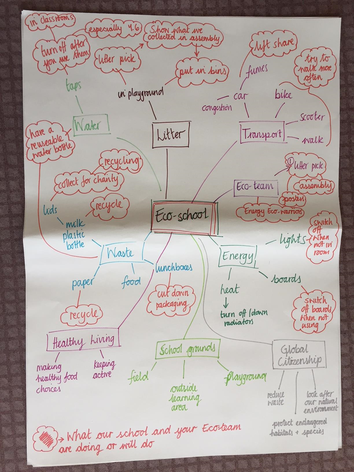 in classrooms
especially 4.6
Show what we
collected in assembly
lift share
turn off after
you use them
litter pick
put in bins
fumes
try to
walk more
often
taps
in playground
car
bike
congestion
scooter
Water
Litter
Transport
walk
have a
reuseable
water bottle
recycling
litter pick
collect for charity
Eco-team
assembly
posters
recycle
Energy Eco-warriors
Eco-school
lids
milk
plastic
bottle
lights
switch
off
when not
in room
Waste
Energy
lunchboxes
paper
food
heat
boards
cut down
packaging
turn off/down
radiators
switch
off boards
when not
using
recycle
Healthy Living
School grounds
Global
Citizenship
making
healthy food
choices
keeping
active
field
playground
outside
learning
area
reduce
waste
look after
our natural
environment
protect endangered
habitats + species
→ What our school and your Ecoteam
are doing or will do